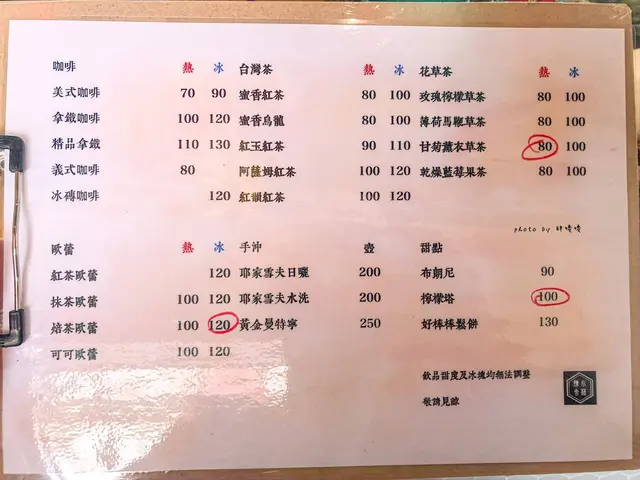 咖啡 熱 冰
美式咖啡 70 90
拿鐵咖啡 100 120
精品拿鐵 110 130
義式咖啡 80
冰磚咖啡 120
台灣茶 熱 冰
蜜香紅茶 80 100
蜜香烏龍 80 100
紅玉紅茶 90 110
阿薩姆紅茶 100 120
紅韻紅茶 100 120
花草茶 熱 冰
玫瑰檸檬草茶 80 100
薄荷馬鞭草茶 80 100
甘菊薰衣草茶 80 100
乾燥藍莓果茶 80 100
photo by
歐蕾 熱 冰
紅茶歐蕾 120
抹茶歐蕾 100 120
焙茶歐蕾 100 120
可可歐蕾 100 120
手沖 壺
耶家雪夫日曬 200
耶家雪夫水洗 200
黃金曼特寧 250
甜點
布朗尼 90
檸檬塔 100
好棒棒鬆餅 130
飲品甜度及冰塊均無法調整
敬請見諒